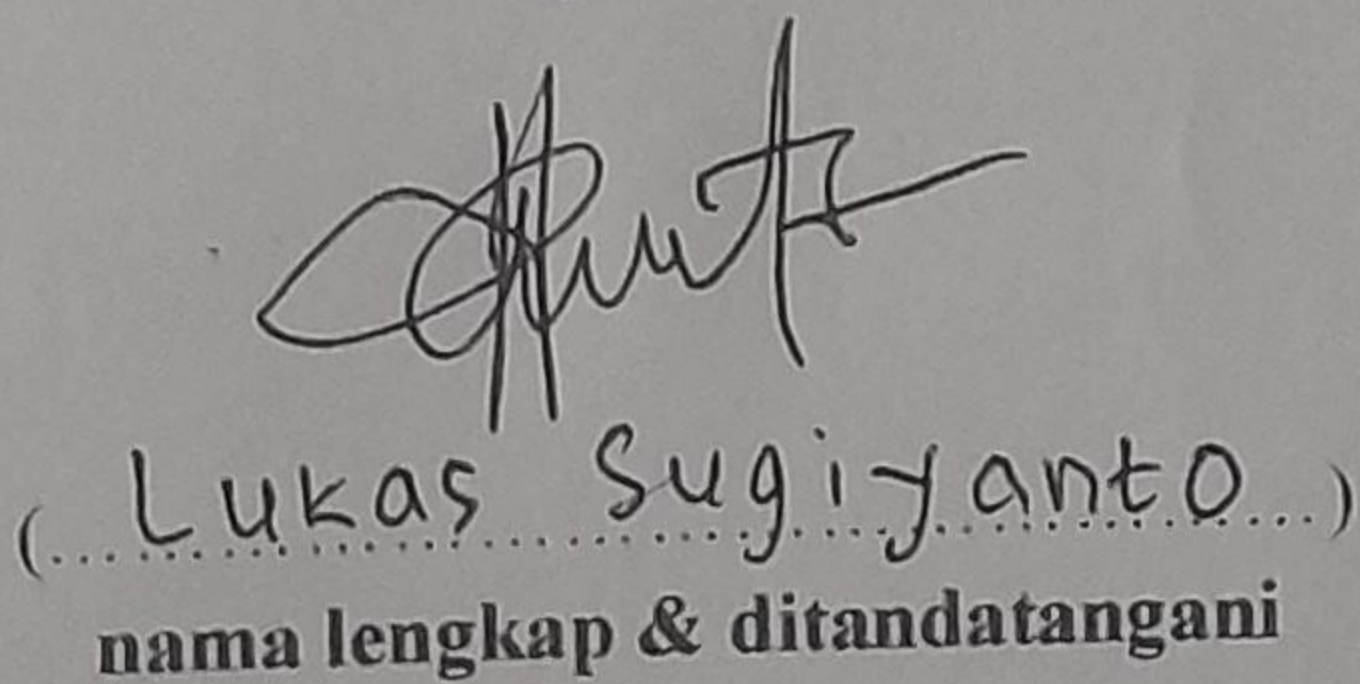 (... Lukas Sugiyanto ...)
nama lengkap & ditandatangani